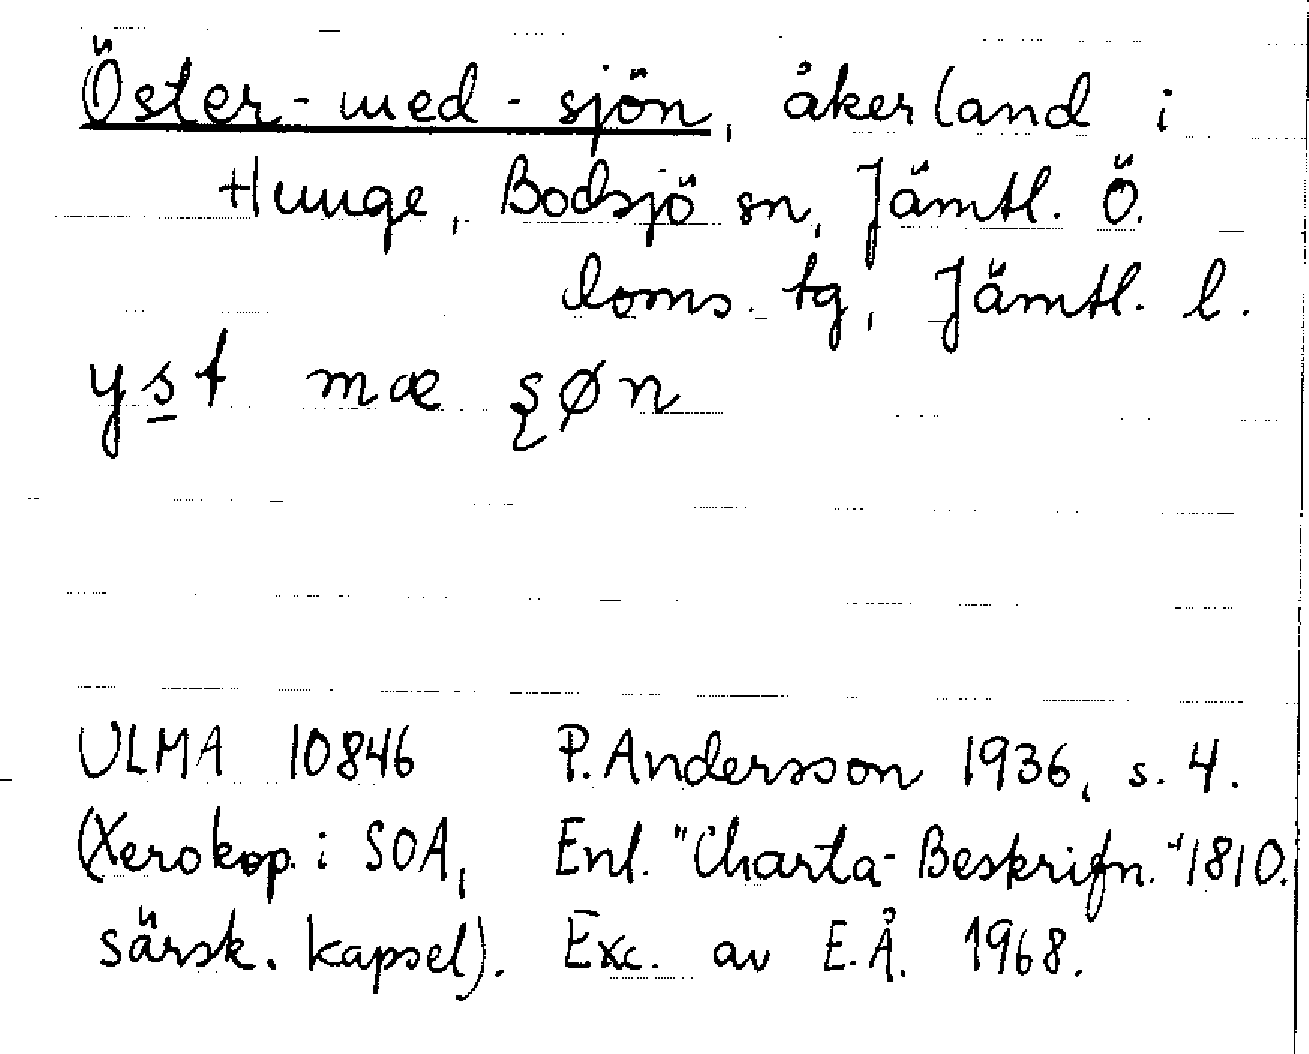 Öster-med-sjön, åkerland i
Hunge, Bodsjö sn, Jämtl. Ö.
doms. tg, Jämtl. l.
yst mæ şøn
ULMA 10846 P. Andersson 1936, s. 4.
(Xerokop. i SOA, Enl. "Charta-Beskrifn." 1810.
särsk. kapsel). Exc. av E.Å. 1968.